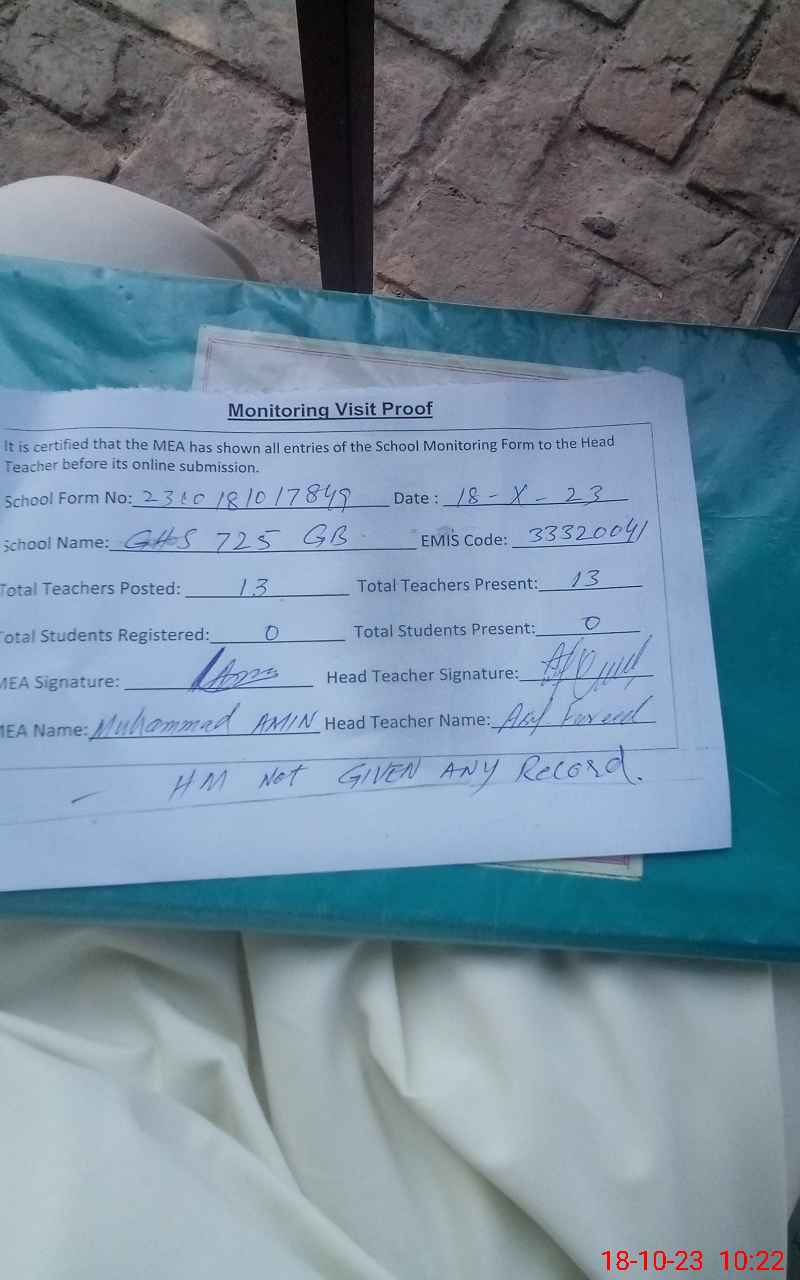 Monitoring Visit Proof
It is certified that the MEA has shown all entries of the School Monitoring Form to the Head
Teacher before its online submission.
School Form No: 2310181017849 Date : 18-X-23
School Name: GHS 725 GB EMIS Code: 33320041
Total Teachers Posted: 13 Total Teachers Present: 13
Total Students Registered: 0 Total Students Present: 0
MEA Signature: Head Teacher Signature:
MEA Name: Muhammad AMIN Head Teacher Name: Asif Fareed
- HM Not GIVEN ANY Record.
18-10-23 10:22